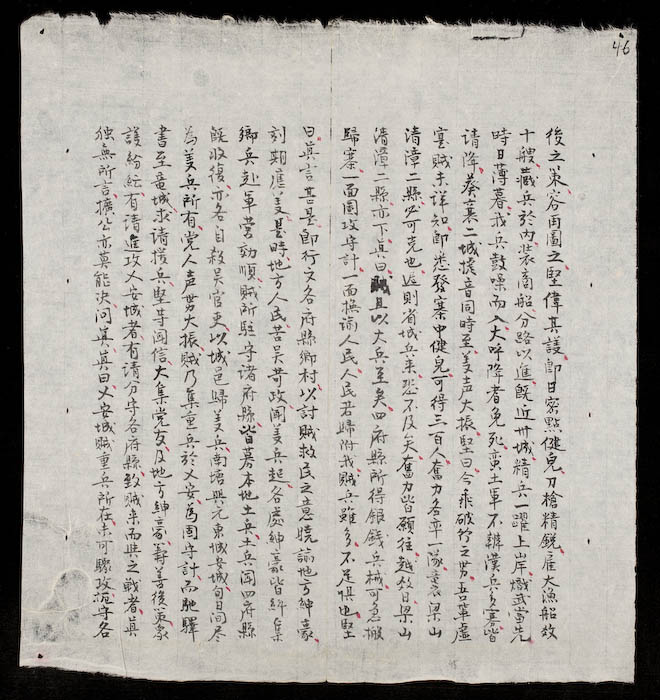 46
後之策容再圖之堅偉其議即日密點健兒刀槍精銳雇大漁船数
十艘藏兵於内装商船分路以進既近卅城精兵一躍上岸熾武當先
時日薄暮我兵鼓噪而入大呼降者免死蛮土軍不辨漢兵多寡皆
请降葵襄二城捷音同時至義声大振堅曰今乘破竹之势吾筭虚
寔賊未详知即悉發寨中健兒可得三百人奮力各率一隊襲梁山
清漳二縣必可克也迟則省城兵来恐不及矣奮力皆願往越数日梁山
清漳二縣亦下真曰且以大兵至矣四府縣所得銀錢兵械可急搬
歸寨一面固攻守計一面撫諭人民人民若歸附我賊兵雖多不足惧也堅
曰真言甚是即行文各府縣鄉村以討賊救民之意曉諭地方紳豪
刻期應義是時地方人民苦吴苛政聞義兵起各處紳豪皆糾集
鄉兵赴軍营効順賊所駐守诸府縣皆募本地土兵土兵闻四府縣
既收復亦各自殺吴官吏以城邑歸義兵南塘興元東城安城旬日間尽
為義兵所有党人声势大振賊乃集重兵於乂安為固守計而馳驛
書至竜城求请援兵堅等闻信大集党友及地方紳豪籌善後策衆
議紛紜有请進攻乂安城者有请分守各府縣致賊来而與之戰者真
独無所言擴公亦莫能决问真真曰乂安城賊重兵所在未可驟攻拒守各